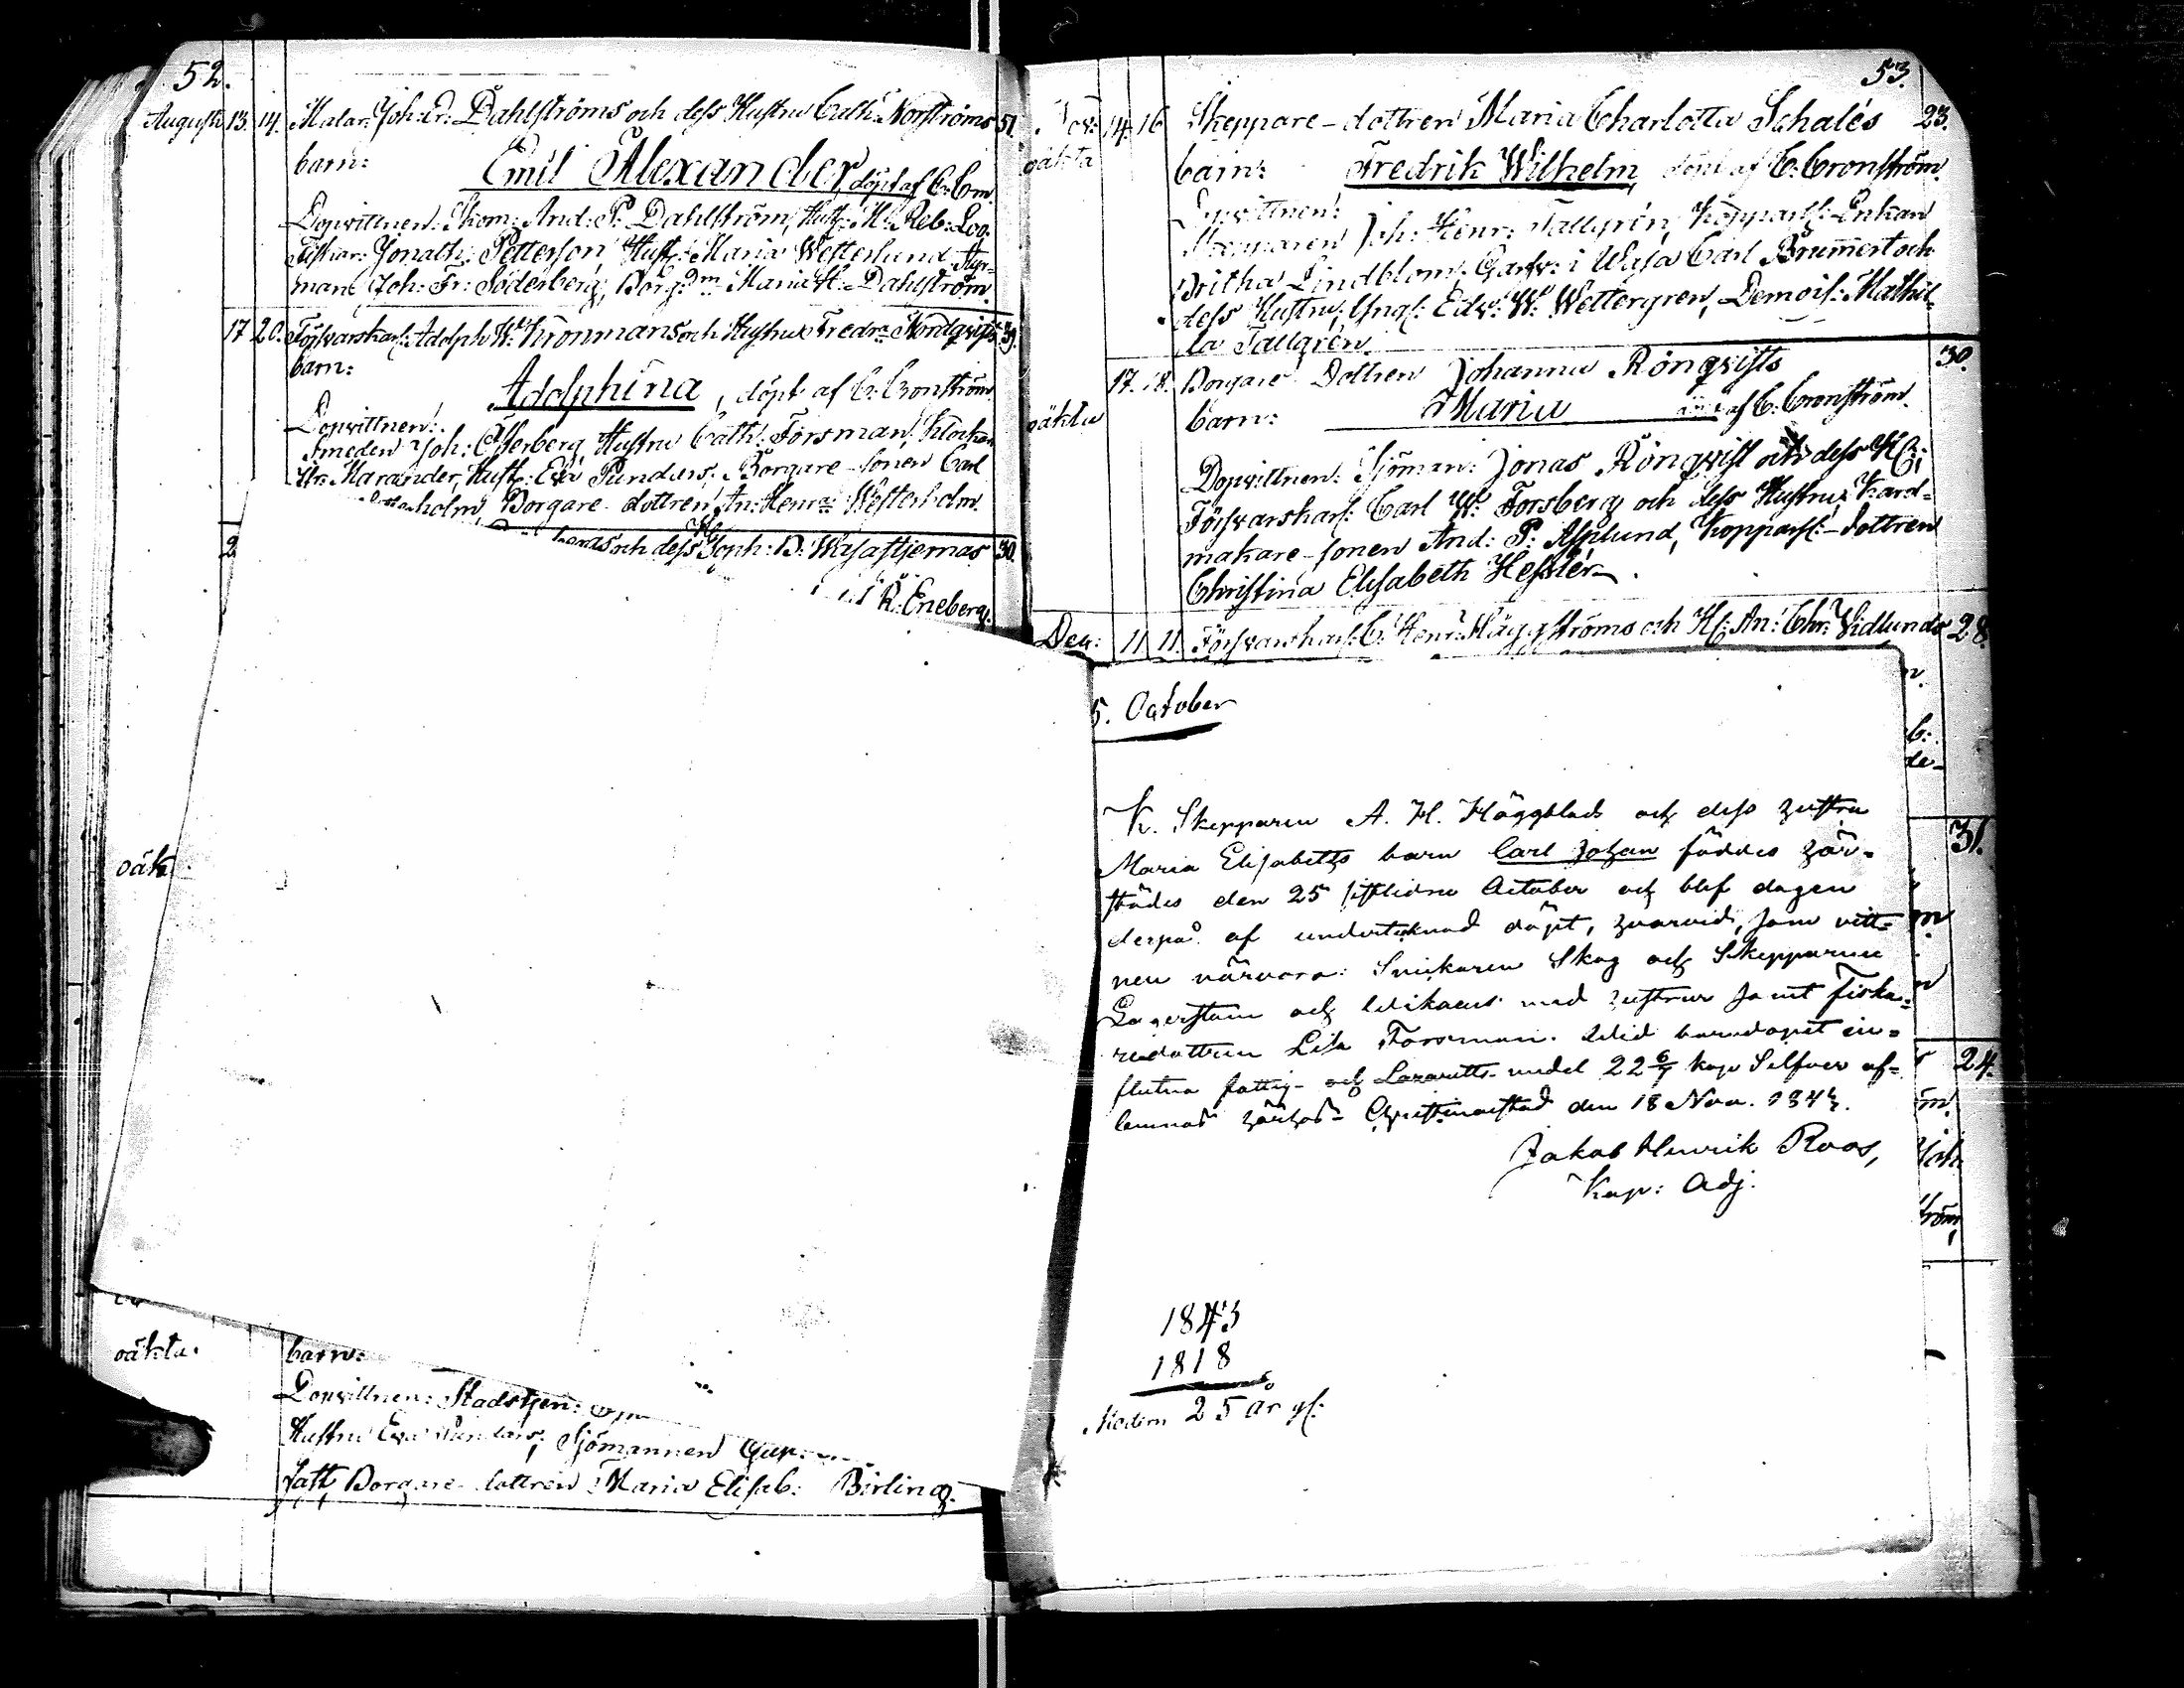 52.
Augusti 13. 14. Malar: Joh: Er: Dahlströms och dess Hustru Cath: Norströms 51.
barn:
Emil Alexander, döpt af C: Cm
Dopvittnen: And: P: Dahlström, Hust: M: Reb: Loo.
Fiskar: Jonath: Petterson Hust: Maria Westerlund, Styr-
man Joh: Fr: Söderberg, Borg: Maria H: Dahlström.
17 20. Försvarskarl: Adolph W: Kronmans och Hustrus Fredr: Nordqvists 39.
barn:
Adolphina, döpt af C: Cronström
Dopvittnen:
Smeden Joh: Åkerberg, Hustru Cath: Forsman, Klockar
Marander, Hust: Eva Sunders, Borgare-sonen Carl
holm, Borgare-dottren An: Henr: Westerholm.
2 och dess Soph: B: Wasastjernas 30.
R: Eneberg.
oäk
oäkta.
barn:
Dopvittnen: Stadstjen:
Hustru Eva Sunders, Sjömannen
samt Borgare-dottren Maria Elisab: Birling.
53.
Nov: 14. 16 Skeppare-dottren Maria Charlotta Schalés 23.
oäkta
barn: Fredrik Wilhelm, döpt af C: Cronström.
Dopvittnen:
Skepparen Joh: Henr: Tallgrén, Kopparsl: Enkan
Britha Lindblom, Garfv: i Wasa Carl Brummert och
dess Hustru, Yngl: Edv: W: Wettergren, Demois: Mathil-
da Tallgrén.
17. 18. Borgare Dottren Johanna Rönqvists 30.
oäkta
barn: Maria döpt af C: Cronström.
Dopvittnen: Sjöman: Jonas Rönqvist och dess H:
Försvarskarl: Carl W: Forsberg och dess Hustru, Kard-
makare-sonen And: P: Asplund, Kopparsl:-dottren
Christina Elisabeth Hesslér.
Dec: 11 11. Försvarskarl: C: Henr: Häggströms och H: An: Chr: Widlunds 28.
31.
24.
5. October
K. Skepparen A. H. Häggblads och dess hustru
Maria Elisabeths barn Carl Johan föddes här-
städes den 25 sistlidne October och blef dagen
derpå af undertecknad döpt, hvarvid, som vitt-
nen närvoro: Snickaren Skog och Skepparne
Lagerstam och med hustrur samt Fiska-
redottren Lisa Forsman. Wid barndopet in-
flutna fattig- och Lazaretts-medel 22 6/7 kop Silfver af-
lemnas härhos. Christinaestad den 18 Nov. 1843.
Jakob Henrik Roos,
Kap: Adj.
1843
1818
Modern 25 år gl: